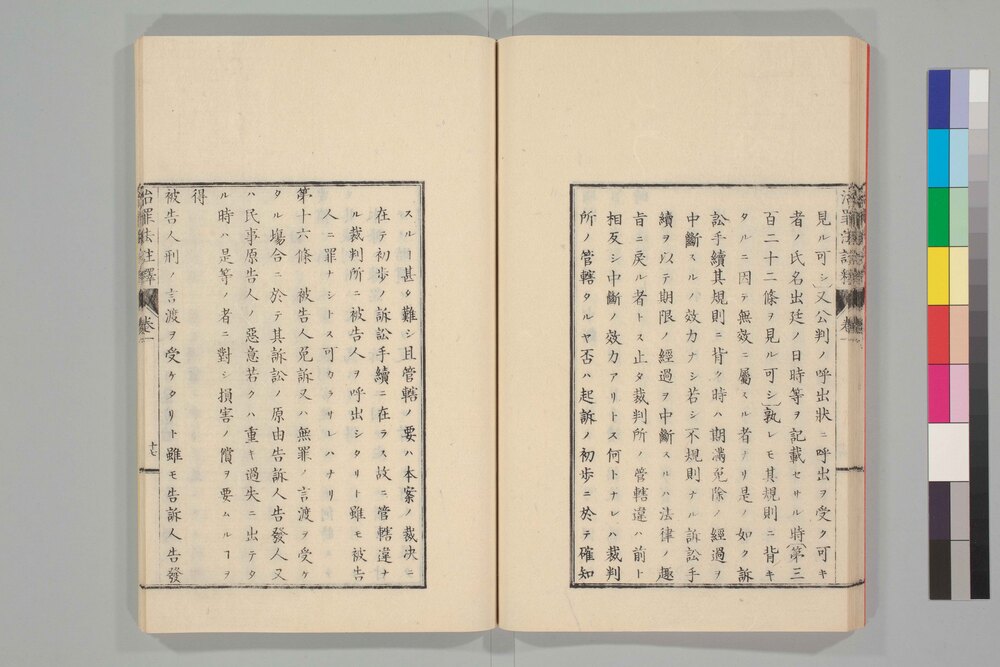 見ル可シ)又公判ノ呼出狀ニ呼出ヲ受ク可キ
者ノ氏名出廷ノ日時等ヲ記載セサル時(第三
百二十二條ヲ見ル可シ)孰レモ其規則ニ背キ
タルニ因テ無效ニ屬スル者ナリ是ノ如ク訴
訟手續其規則ニ背ク時ハ期滿免除ノ經過ヲ
中斷スルノ效力ナシ若シ不規則ナル訴訟手
續ヲ以テ期限ノ經過ヲ中斷スルハ法律ノ趣
旨ニ戾ル者トス止タ裁判所ノ管轄違ハ前ト
相反シ中斷ノ效力アリトス何トナレハ裁判
所ノ管轄タルヤ否ハ起訴ノ初步ニ於テ確知
スルヿ甚タ難シ且管轄ノ要ハ本案ノ裁决ニ
在テ初步ノ訴訟手續ニ在ラス故ニ管轄違ナ
ル裁判所ニ被告人ヲ呼出シタリト雖モ被告
人ニ罪ナシトス可カラサレハナリ
第十六條 被告人免訴又ハ無罪ノ言渡ヲ受ケ
タル塲合ニ於テ其訴訟ノ原由告訴人告發人又
ハ民事原告人ノ惡意若クハ重キ過失ニ出テタ
ル時ハ是等ノ者ニ對シ損害ノ償ヲ要ムルヿヲ
得
被告人刑ノ言渡ヲ受ケタリト雖モ告訴人告發
治罪法註釋 卷一